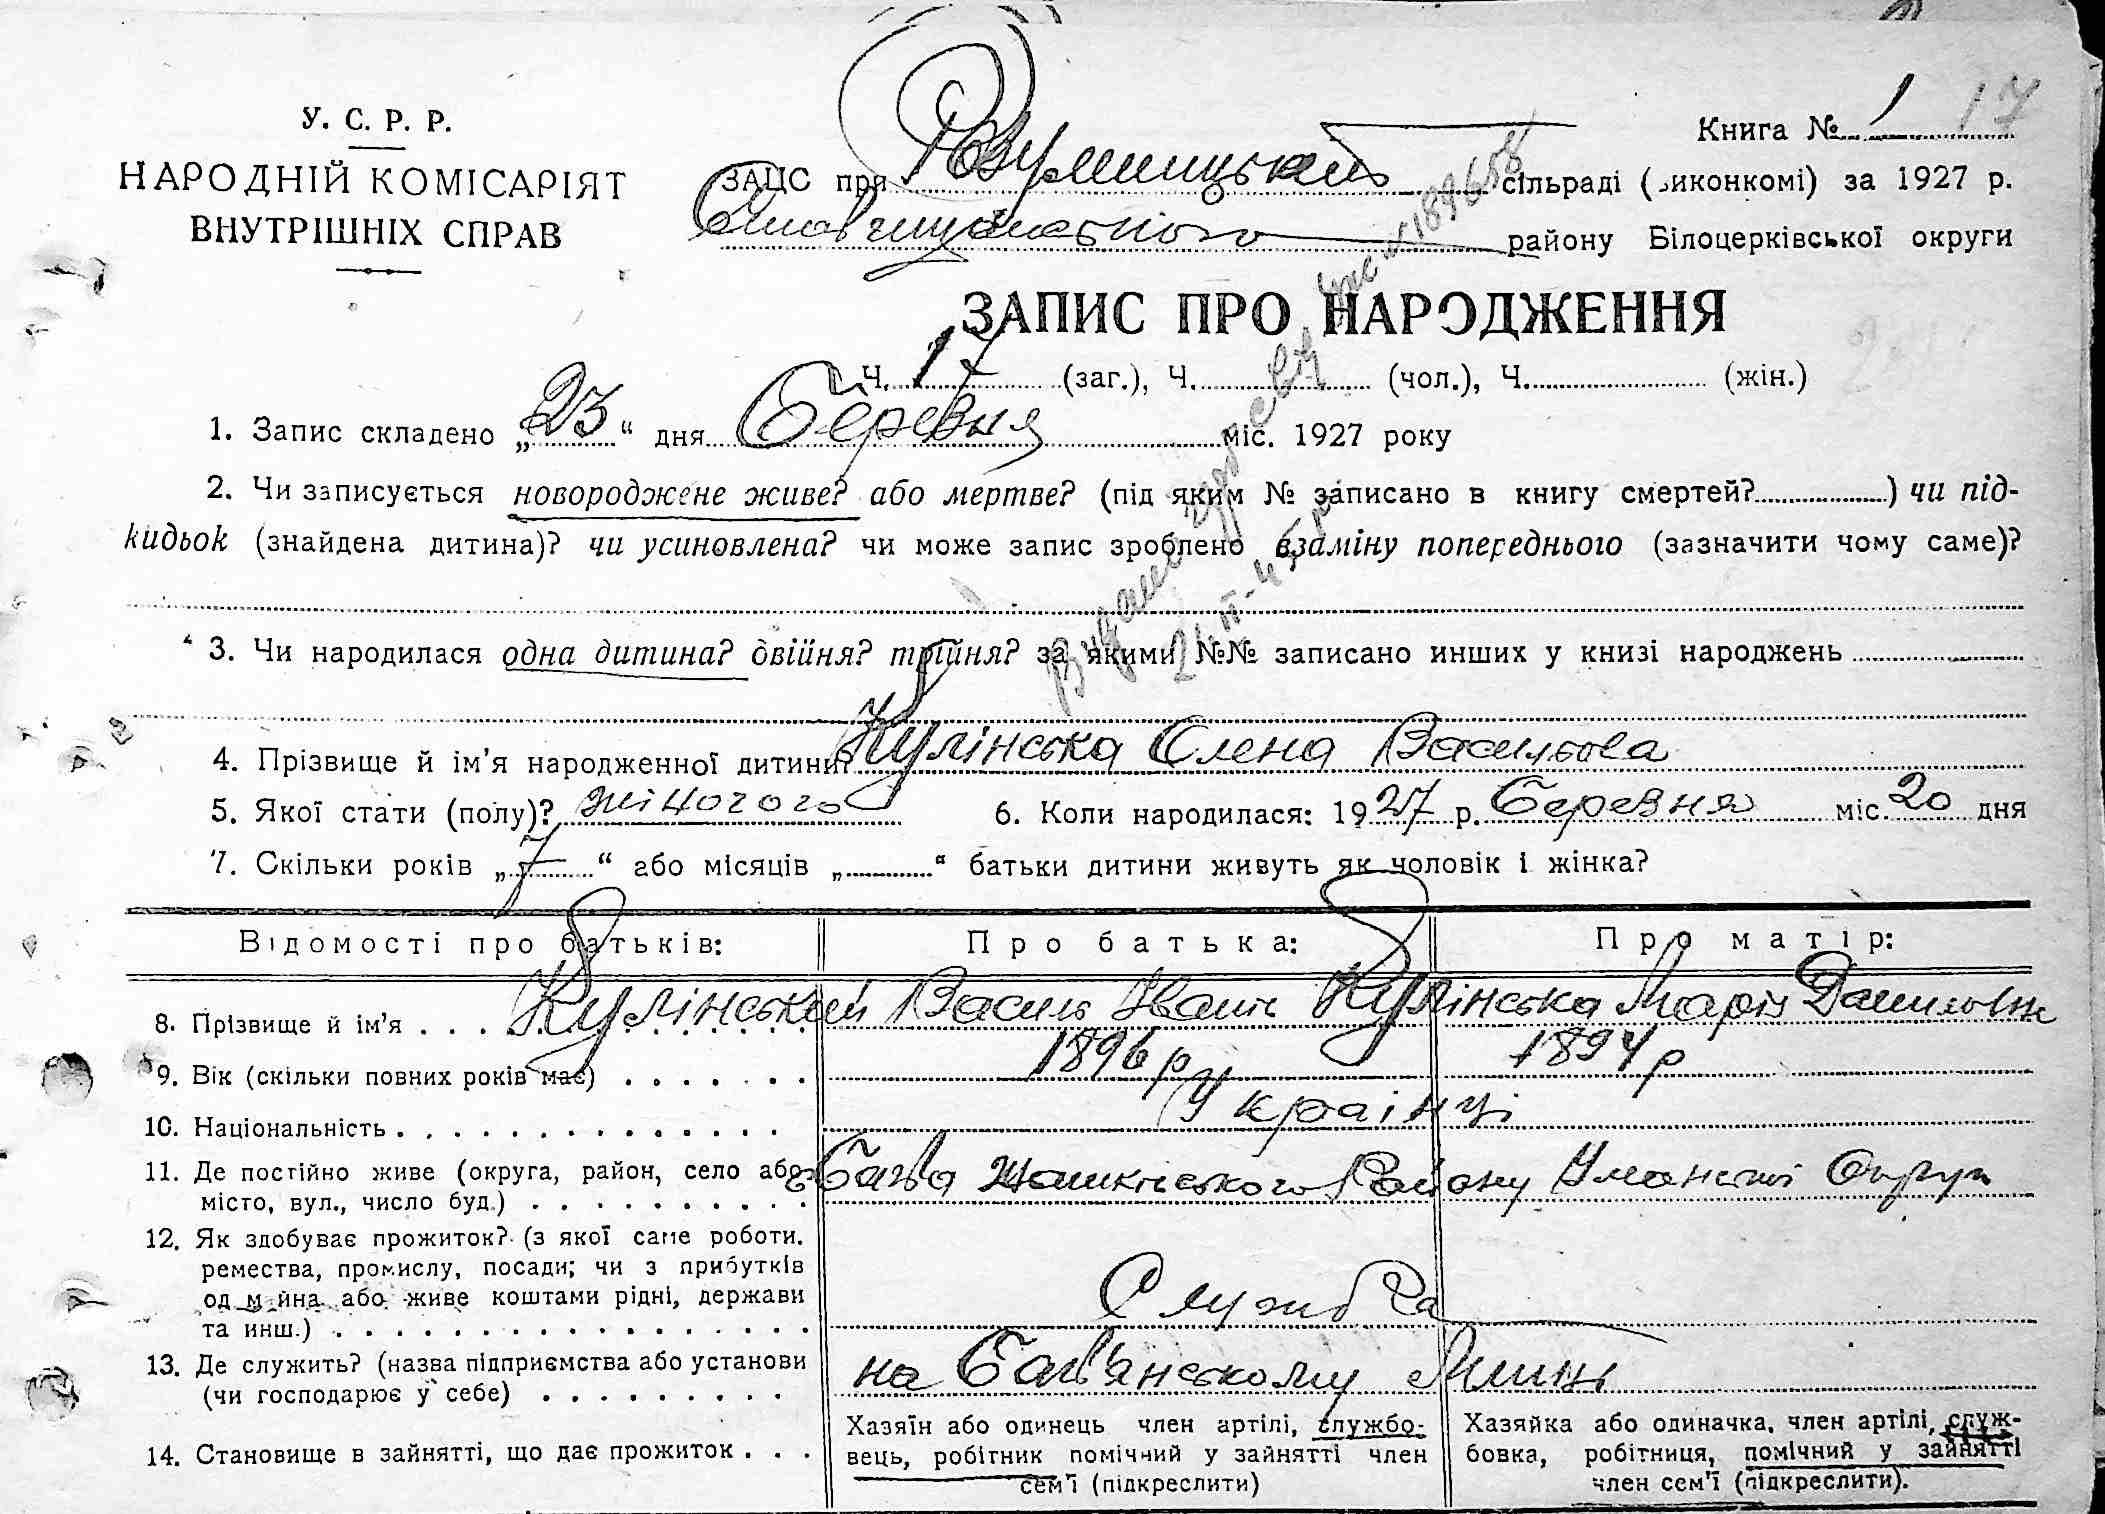 У. С. Р. Р.
НАРОДНІЙ КОМІСАРІЯТ
ВНУТРІШНІХ СПРАВ
Книга № 1 17
ЗАЦС при сільраді (виконкомі) за 1927 р.
району Білоцерківської округи
ЗАПИС ПРО НАРОДЖЕННЯ
Ч. 17 (заг.), Ч. (чол.), Ч. (жін.)
1. Запис складено „23“ дня Березня міс. 1927 року
2. Чи записується новороджене живе? або мертве? (під яким № записано в книгу смертей? ) чи під-
кидьок (знайдена дитина)? чи усиновлена? чи може запис зроблено взаміну попереднього (зазначити чому саме)?
3. Чи народилася одна дитина? двійня? трійня? за якими №№ записано инших у книзі народжень
4. Прізвище й ім'я народженної дитини? Кулінська Олена Васильова
5. Якої стати (полу)? жіночого 6. Коли народилася: 1927 р. Березня міс. 20 дня
7. Скільки років „7“ або місяців „ “ батьки дитини живуть як чоловік і жінка?
Відомості про батьків: Про батька: Про матір:
8. Прізвище й ім'я . . . Кулінський Василь Іванів Кулінська Марія Данилівна
9. Вік (скільки повних років має) . . . . . . . 1896 р 1894 р
10. Національність . . . . . . . . . . . . . . Українці
11. Де постійно живе (округа, район, село або Багва Жашківського Району Уманської Округи
місто, вул., число буд.) . . . . . . . . . .
12. Як здобуває прожиток? (з якої саме роботи.
ремества, промислу, посади; чи з прибутків
од майна або живе коштами рідні, держави
та инш.) . . . . . . . . . . . . . . . . . Служба
13. Де служить? (назва підприємства або установи на Багв'янському Млині
(чи господарює у себе) . . . . . . . . .
14. Становище в зайнятті, що дає прожиток . . .
Хазяїн або одинець член артілі, службо-
вець, робітник помічний у зайнятті член
сем'ї (підкреслити)
Хазяйка або одиначка, член артілі, служ-
бовка, робітниця, помічний у зайнятті
член сем'ї (підкреслити).